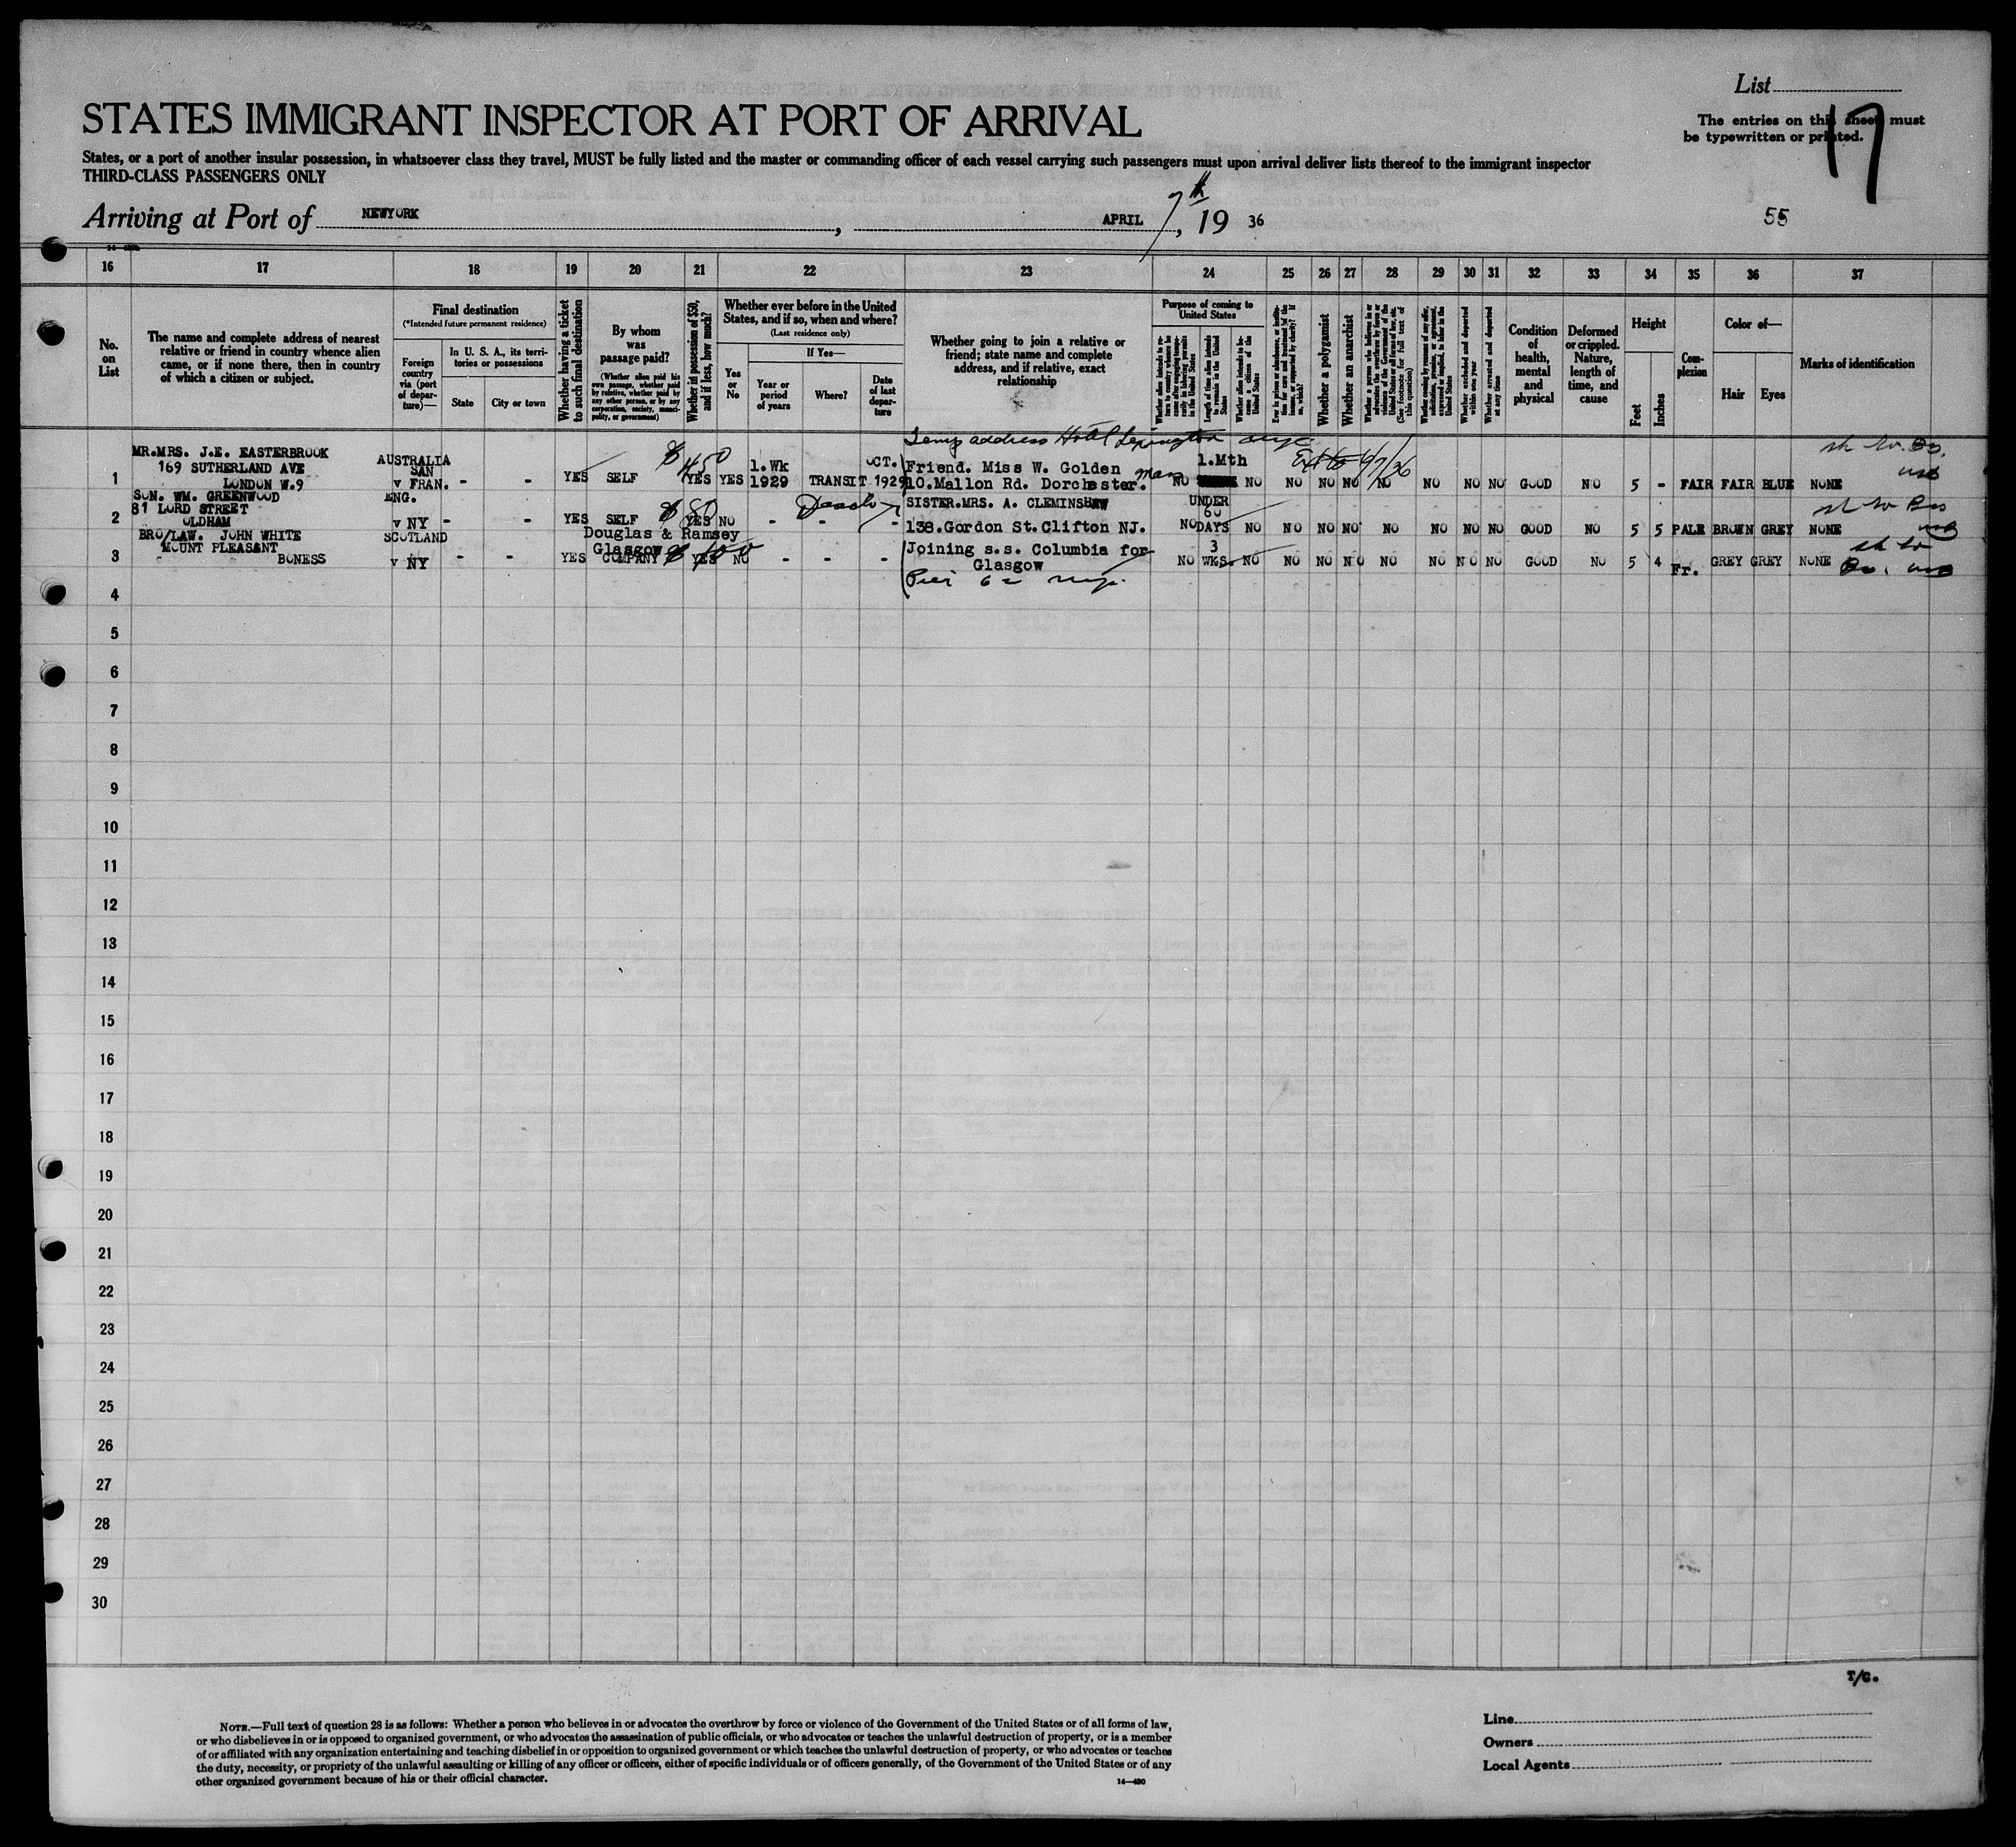 List
17
The entries on this sheet must
be typewritten or printed.
STATES IMMIGRANT INSPECTOR AT PORT OF ARRIVAL
States, or a port of another insular possession, in whatsoever class they travel, MUST be fully listed and the master or commanding officer of each vessel carrying such passengers must upon arrival deliver lists thereof to the immigrant inspector
THIRD-CLASS PASSENGERS ONLY
Arriving at Port of NEWYORK , APRIL 7th, 19 36
55
16 17 18 19 20 21 22 23 24 25 26 27 28 29 30 31 32 33 34 35 36 37
No. on List
The name and complete address of nearest
relative or friend in country whence alien
came, or if none there, then in country
of which a citizen or subject.
Final destination
(*Intended future permanent residence)
Foreign country via (port of departure)—
In U. S. A., its territories or possessions
State
City or town
Whether having a ticket to such final destination
By whom was passage paid?
(Whether alien paid his own passage, whether paid by relative, whether paid by any other person, or by any corporation, society, municipality, or government)
Whether in possession of $50, and if less, how much?
Whether ever before in the United States, and if so, when and where?
(Last residence only)
Yes or No
If Yes—
Year or period of years
Where?
Date of last departure
Whether going to join a relative or
friend; state name and complete
address, and if relative, exact
relationship
Purpose of coming to United States
Length of time alien intends to remain in the United States
Whether alien intends to become a citizen of the United States
Whether a polygamist
Whether an anarchist
Whether excluded and deported within one year
Whether arrested and deported at any time
Condition of health, mental and physical
Deformed or crippled. Nature, length of time, and cause
Height
Feet
Inches
Complexion
Color of—
Hair
Eyes
Marks of identification
Temp address Hotel Lexington nyc
MR.MRS. J.E. EASTERBROOK
169 SUTHERLAND AVE
LONDON W.9
1 AUSTRALIA SAN v FRAN. - - YES SELF $450 YES YES 1.Wk 1929 TRANSIT OCT. 1929 Friend. Miss W. Golden
10.Mallon Rd. Dorchester. mass 1.Mth NO NO NO NO NO NO NO NO NO GOOD NO 5 - FAIR FAIR BLUE NONE
Ext to 9/7/36
SON. WM. GREENWOOD
81 LORD STREET
OLDHAM
2 ENG. v NY - - YES SELF $80 YES NO - - - SISTER.MRS. A. CLEMINSHAW
138.Gordon St.Clifton NJ. NO UNDER 60 DAYS NO NO NO NO NO NO NO NO GOOD NO 5 5 PALE BROWN GREY NONE
BRO/LAW. JOHN WHITE
MOUNT PLEASANT
BONESS
3 SCOTLAND v NY - - YES Douglas & Ramsey
Glasgow
COMPANY $100 YES NO - - - Joining s.s. Columbia for
Glasgow
Pier 62 nyc. NO 3 WKS. NO NO NO NO NO NO NO NO GOOD NO 5 4 Fr. GREY GREY NONE
4
5
6
7
8
9
10
11
12
13
14
15
16
17
18
19
20
21
22
23
24
25
26
27
28
29
30
T/C.
NOTE.—Full text of question 28 is as follows: Whether a person who believes in or advocates the overthrow by force or violence of the Government of the United States or of all forms of law,
or who disbelieves in or is opposed to organized government, or who advocates the assassination of public officials, or who advocates or teaches the unlawful destruction of property, or is a member
of or affiliated with any organization entertaining and teaching disbelief in or opposition to organized government or which teaches the unlawful destruction of property, or who advocates or teaches
the duty, necessity, or propriety of the unlawful assaulting or killing of any officer or officers, either of specific individuals or of officers generally, of the Government of the United States or of any
other organized government because of his or their official character.
14—480
Line
Owners
Local Agents